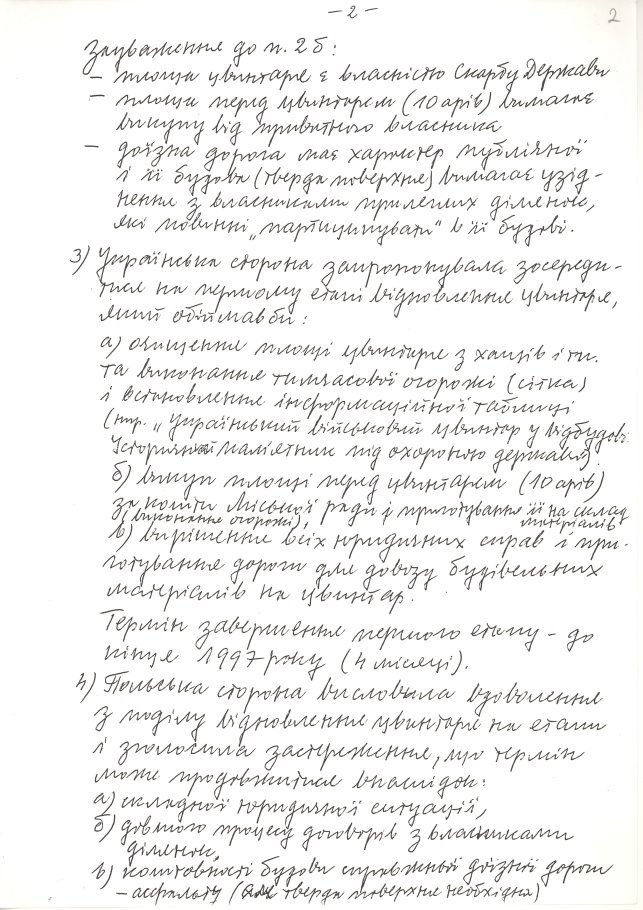 – 2 –
2
Зауваження до п. 2б:
– площа цвинтаря є власністю Скарбу Держави
– площа перед цвинтарем (10 арів) вимагає
викупу від приватного власника
– доїзна дорога має характер публічної
і її будова (тверда поверхня) вимагає узгід-
нення з власниками прилеглих ділянок,
які повинні „партиципувати" в її будові.
3) Українська сторона запропонувала зосереди-
тися на першому етапі відновлення цвинтаря,
який обіймав би:
а) очищення площі цвинтаря з хащів і ти.
та виконання тимчасової огорожі (сітка)
і встановлення інформаційної таблиці
(нпр. „Український військовий цвинтар у відбудові.
Історичний пам'ятник під охороною держави).
б) викуп площі перед цвинтарем (10 арів)
за кошти Міської ради і приготування її на склад
(виконання огорожі), матеріалів
в) вирішення всіх юридичних справ і при-
готування дороги для довозу будівельних
матеріалів на цвинтар.
Термін завершення першого етапу – до
кінця 1997 року (4 місяці).
4) Польська сторона висловила вдоволення
з поділу відновлення цвинтаря на етапи
і зголосила застереження, що термін
може продовжитися внаслідок:
а) складної юридичної ситуації,
б) довгого процесу договорів з власниками
ділянок,
в) коштовності будови справжньої доїзної дороги
– асфальту (але тверда поверхня необхідна)